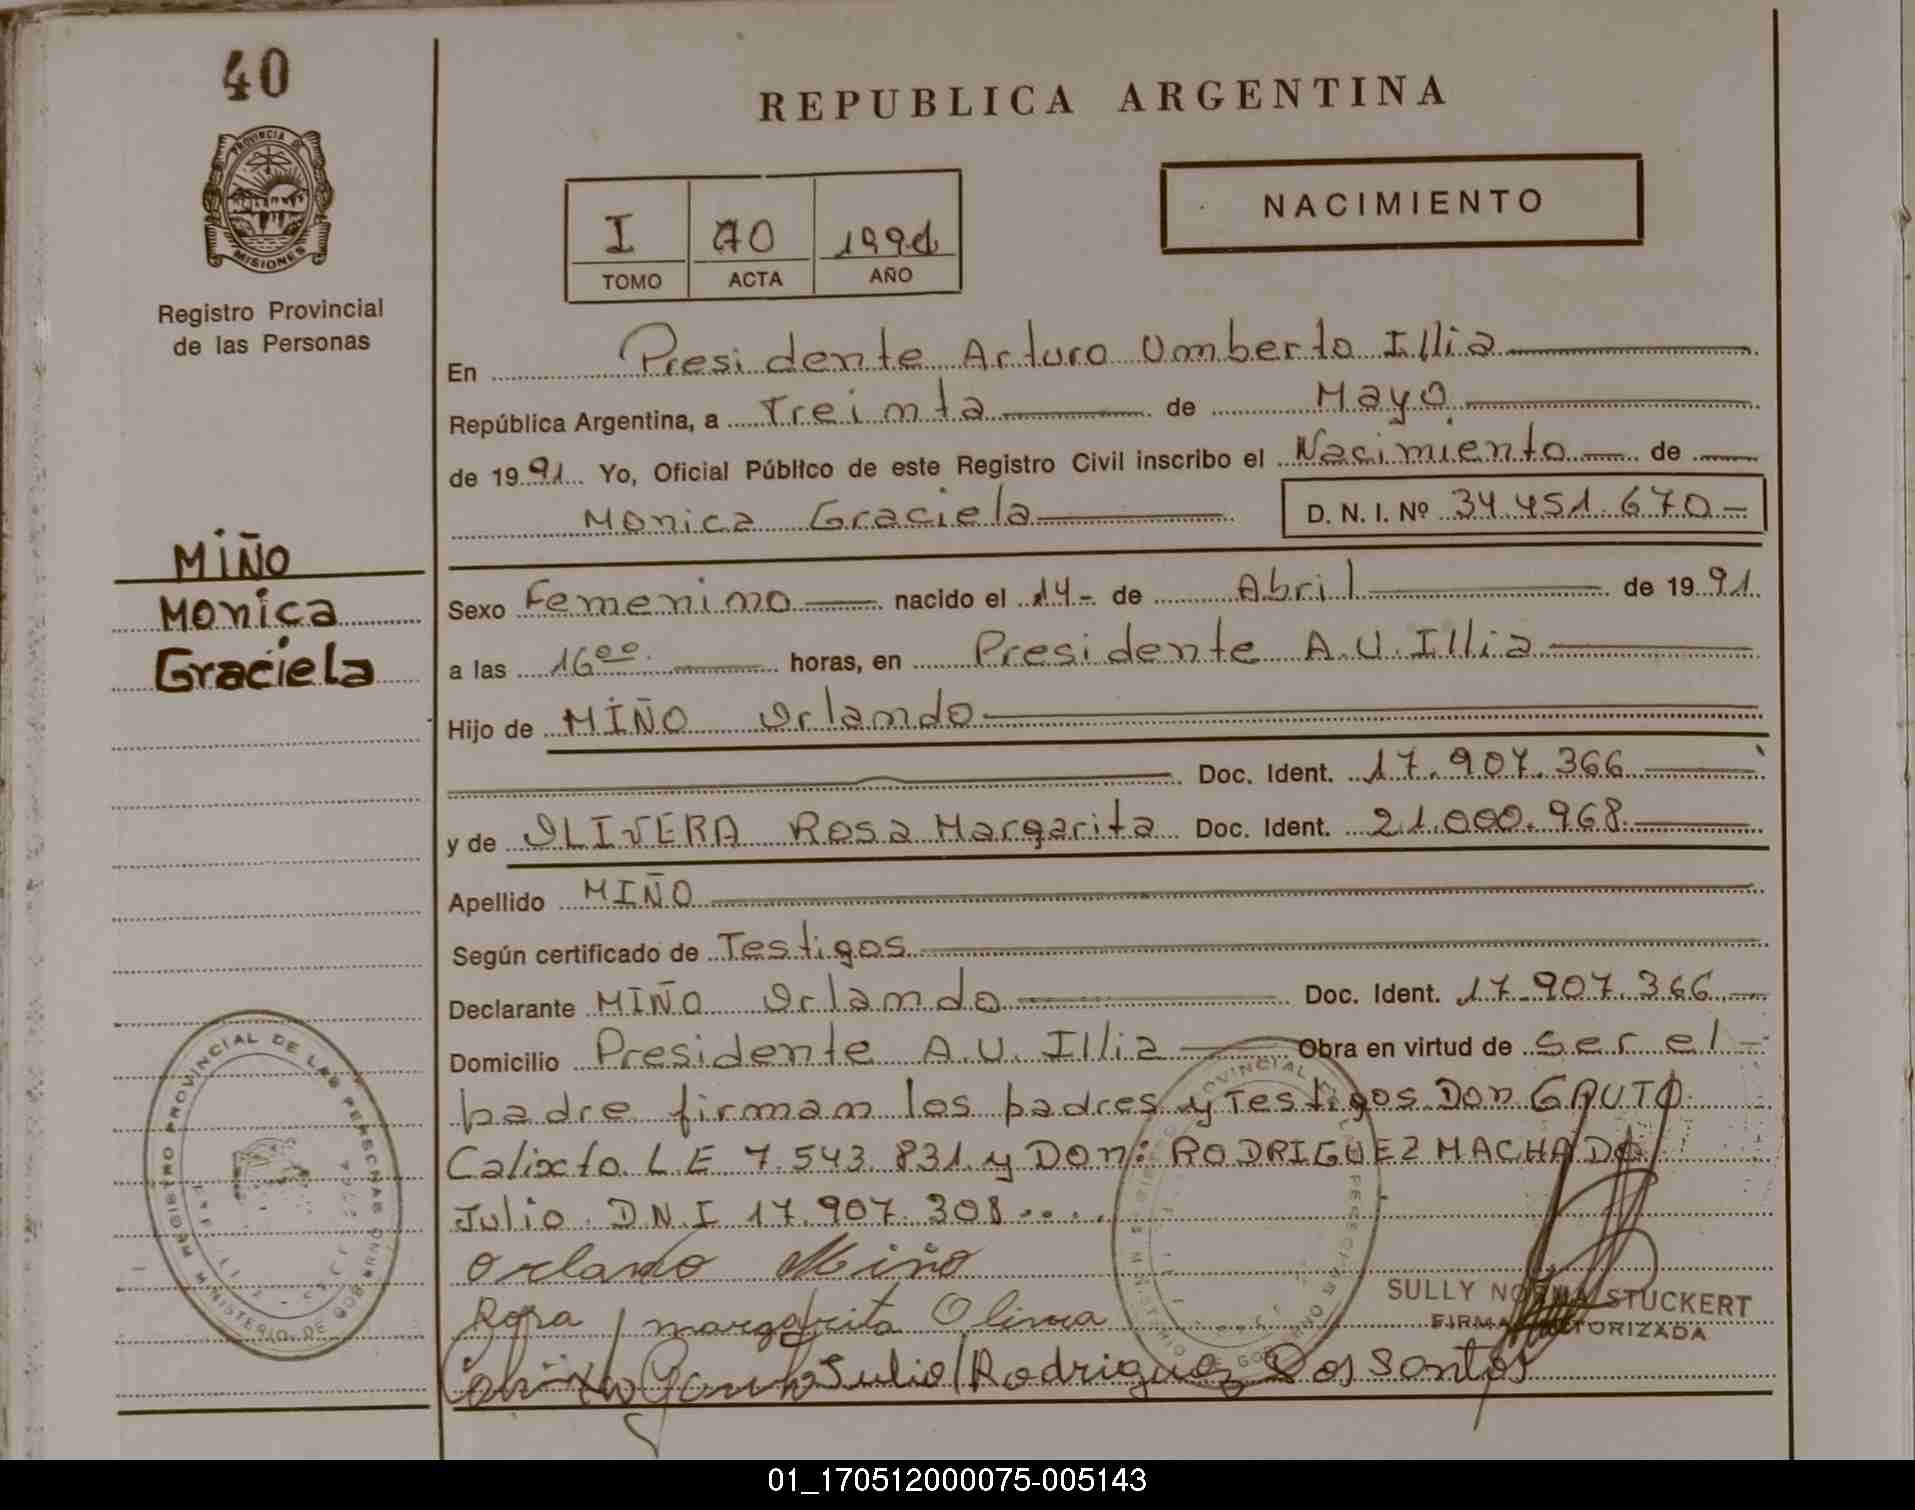 40
REPUBLICA ARGENTINA
PROVINCIA DE
MISIONES
Registro Provincial
de las Personas
I 70 1991
TOMO ACTA AÑO
NACIMIENTO
En Presidente Arturo Umberto Illia
República Argentina, a Treinta de Mayo
de 1991 Yo, Oficial Público de este Registro Civil inscribo el Nacimiento de
Monica Graciela D. N. I. Nº 34.451.670
MIÑO
Monica
Graciela
Sexo Femenino nacido el 14 de Abril de 1991
a las 16 00 horas, en Presidente A.U. Illia
Hijo de MIÑO Orlando
Doc. Ident. 17.907.366
y de OLIVERA Rosa Margarita Doc. Ident. 21.000.968
Apellido MIÑO
Según certificado de Testigos
Declarante MIÑO Orlando Doc. Ident. 17.907.366
Domicilio Presidente A.U. Illia Obra en virtud de ser el
padre firman los padres y Testigos Don GAUTO
Calixto L E 7.543.831 y DON: RODRIGUEZ MACHADO
Julio. D N I 17.907.308....
Orlando Miño
Rosa margarita Olivera
Julio Rodriguez Dos Santos
SULLY NORMA STUCKERT
FIRMA AUTORIZADA
REGISTRO PROVINCIAL DE LAS PERSONAS
MINISTERIO DE GOBIERNO
01_170512000075-005143